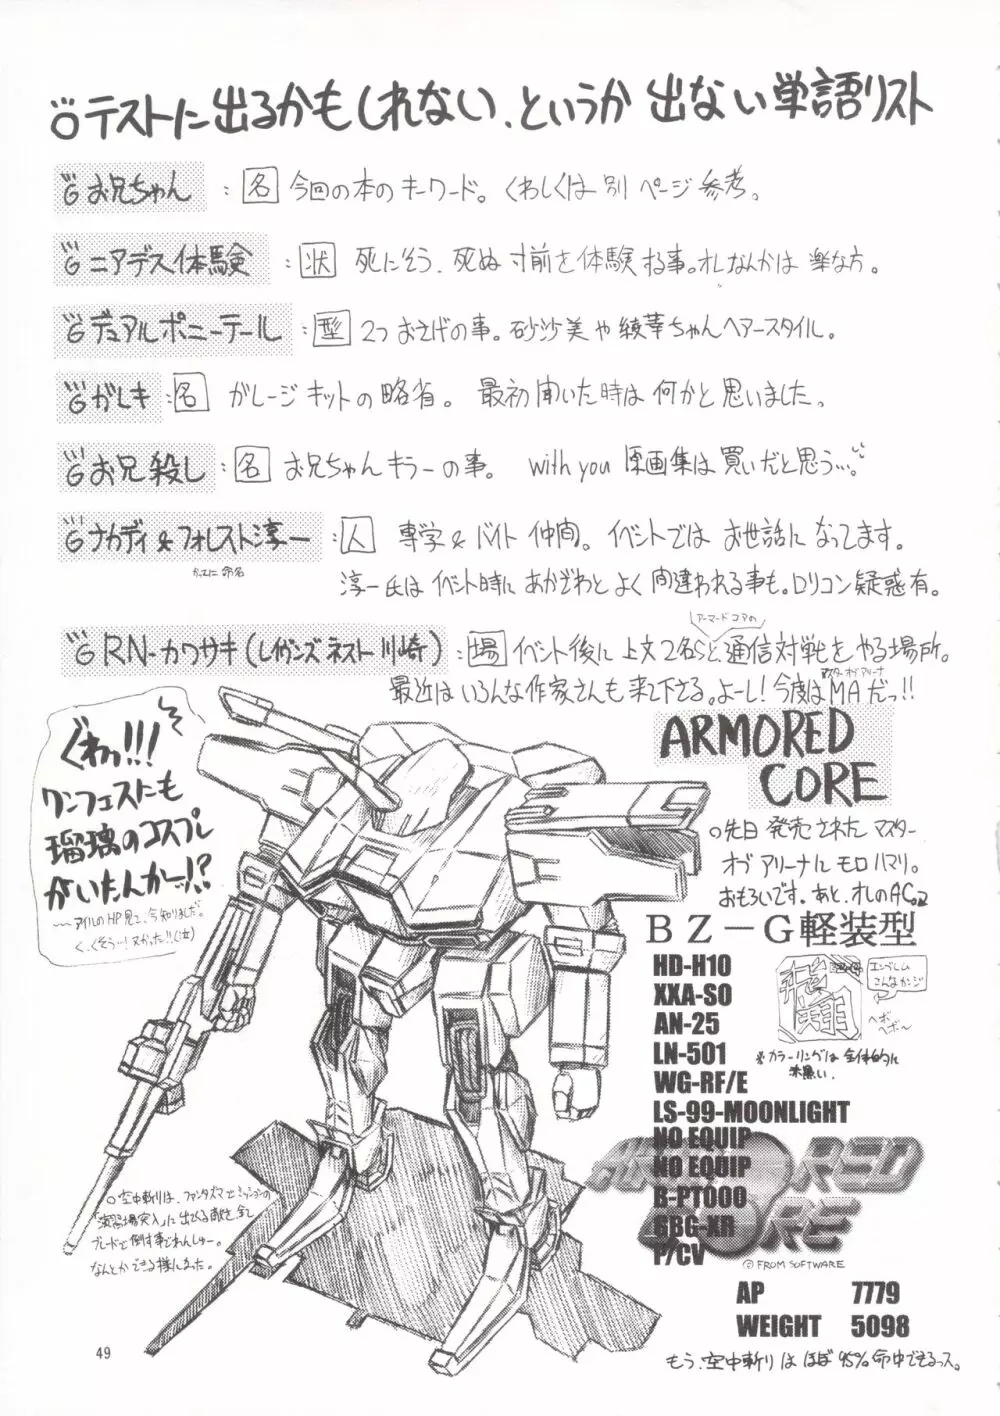 テストに出るかもしれない、というか 出ない単語リスト
お兄ちゃん : 名 今回の本のキーワード。くわしくは 別ページ参考。
ニアデス体験 : 状 死にそう、死ぬ寸前を体験する事。オレなんかは 楽な方。
デュアルポニーテール : 型 2つおさげの事。砂沙美や綾華ちゃんヘアースタイル。
ガレキ : 名 ガレージキットの略省。最初聞いた時は何かと思いました。
お兄殺し : 名 お兄ちゃんキラーの事。with you 原画集は買いだと思う…。
ナカディ&フォレスト淳一 : 人 専学&バイト仲間。イベントでは お世話になってます。
かってに命名
淳一氏はイベント時に あかざわと よく 間違われる事も。ロリコン疑惑有。
アーマードコアの
RN-カワサキ(レイヴンズネスト川崎) : 場 イベント後に上文2名らと、通信対戦をやる場所。
マスターオブアリーナ
最近は いろんな作家さんも来て下さる。よーし!今度はMAだっ!!
ぐわっ!!!
ワンフェスにも
瑠璃のコスプレ
がいたんかーっ!?
〜アイルのHP見て、今知りました。
く、くそうー!ヌかった!!(泣)
ARMORED
CORE
○先日 発売された マスター
オブ アリーナル モロハマリ。
おもろいです。あと、オレのACっス
BZ－G軽装型
HD-H10
XXA-SO
AN-25
LN-501
WG-RF/E
LS-99-MOONLIGHT
NO EQUIP
NO EQUIP
B-PT000
GBG-XR
P/CV
飛翔
エンブレム
こんなカンジ
ヘボ
ヘボ〜
※カラーリングは 全体的に
赤黒い。
ARMORED
CORE
© FROM SOFTWARE
AP 7779
WEIGHT 5098
もう、空中斬りは ほぼ 95%命中できるっス。
○空中斬りは、ファンタズマでミッションの
「演習場突入」に出てくる敵を、全て
ブレードで倒す事でれんしゅー。
なんとかできる様になった。
49